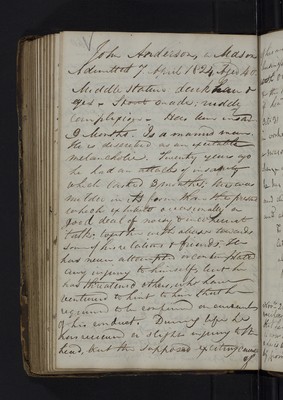 John Anderson, a Mason
Admitted 7 April 1824 Aged 40
Middle stature dark hair &
eyes - Stout made; ruddy
complexion -
9 Months. Is a married man.
He is described as an excitable
melancholic. Twenty years ago
he had an attack of insanity
which lasted 3 months; This was
milder in its form than the present
which exhibits occasionally a
good deal of noisy & incoherent
talk; together with abuse towards
some of his relations & friends. He
has never attempted or contemplated
any injury to himself, but he
has threatened others, who have
ventured to hint to him that he
required to be confined on account
of his conduct. During life he
has received a slight injury to the
head, but the supposed exciting cause
of